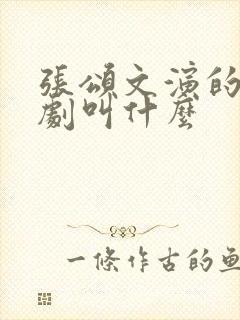 張頌文演的
劇叫什麼
一條作古的魚